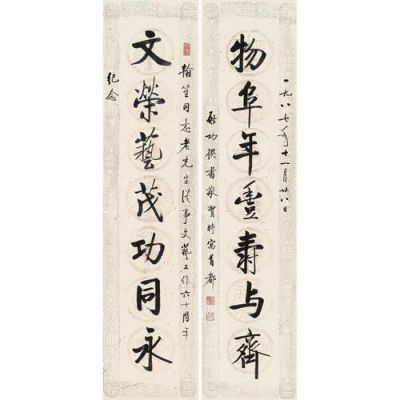 一九八七年十一月廿八日
物阜年豐壽与齊
啟功撰書敬賀時寓首都
翰笙同志老先生從事文藝工作六十周年
文榮藝茂功同永
紀念